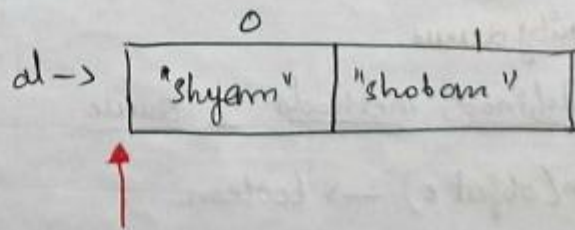 0 1
al -> "shyam" "shobam"